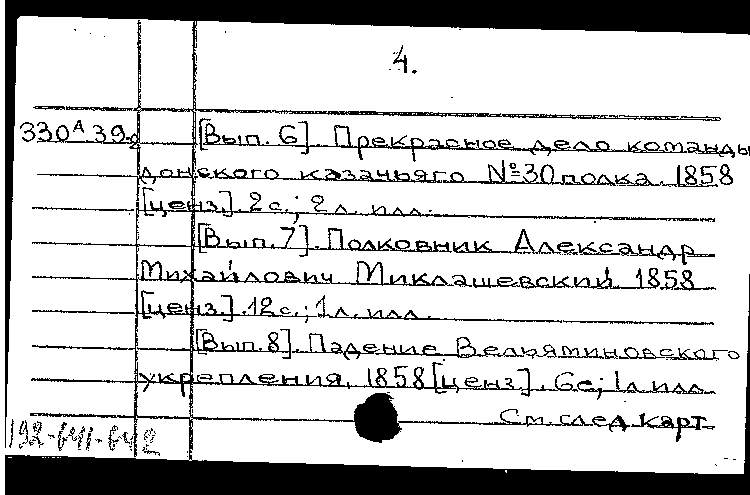 4.
330 А 39-2 [Вып. 6]. Прекрасное дело команды
донского казачьяго № 30 полка. 1858
[ценз.]. 2 с.; 2 л. илл.
[Вып. 7]. Полковник Александр
Михайлович Миклашевский 1858
[ценз.]. 12 с.; 1 л. илл.
[Вып. 8]. Падение Вельяминовского
укрепления. 1858 [ценз.]. 6 с; 1 л илл
См. след карт
192-641-642